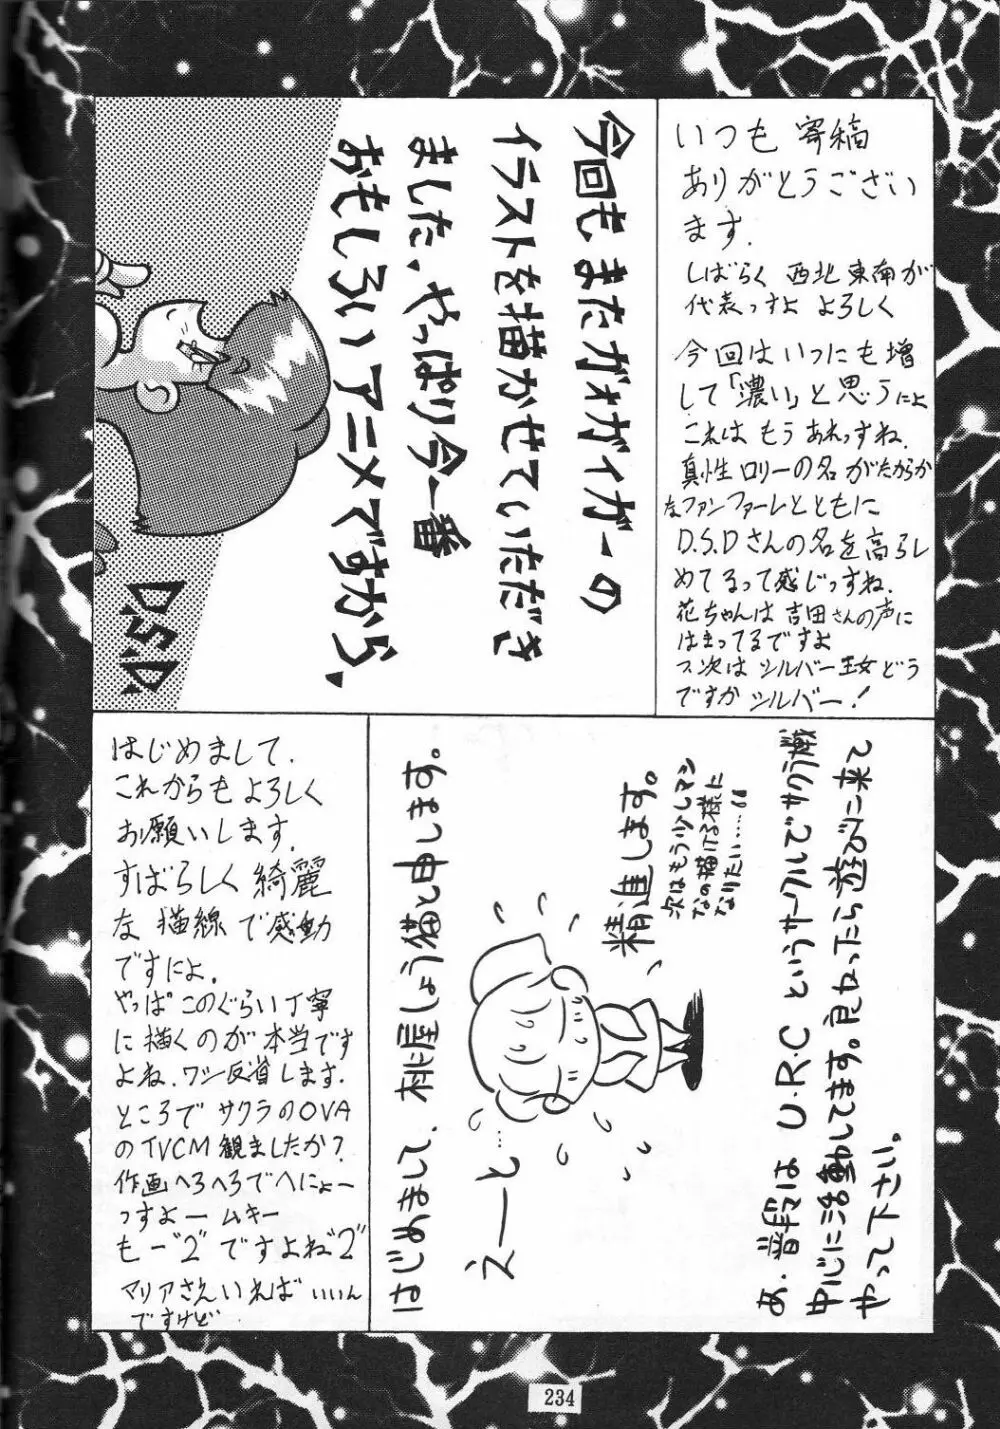 今回もまたガオガイガーの
イラストを描かせていただき
ました。やっぱり今一番
おもしろいアニメですから。
D.S.D
いつも 寄稿
ありがとうござい
ます.
しばらく 西北東南が
代表っすよ よろしく
今回は いつにも増
して「濃い」と思うによ
これは もう あれっすね.
真性 ロリーの名 がたからか
なファンファーレとともに
D.S.Dさんの名を高らし
めてるって感じっすね.
花ちゃんは 吉田さんの声に
はまってるですよ
次は シルバー王女 どう
ですか シルバー!
はじめまして.
これからも よろしく
お願いします.
すばらしく 綺麗
な 描線 で感動
ですによ.
やっぱ このぐらい丁寧
に描くのが 本当です
よね. ワシ反省します.
ところで サクラのOVA
のTVCM 観ましたか?
作画へろへろでへにょー
っすよー ムキー
もー"2"ですよね"2"
マリアさえいれば いいん
ですけど
はじめまして、桃屋しょう猫と申します。
えーと…
精進します。
次はもう少しマシ
なの描ける様に
なりたい……
あ、普段は U・R・C というサークルでサクラ戦
中心に活動してます。良かったら遊びに来て
やって下さい。
234